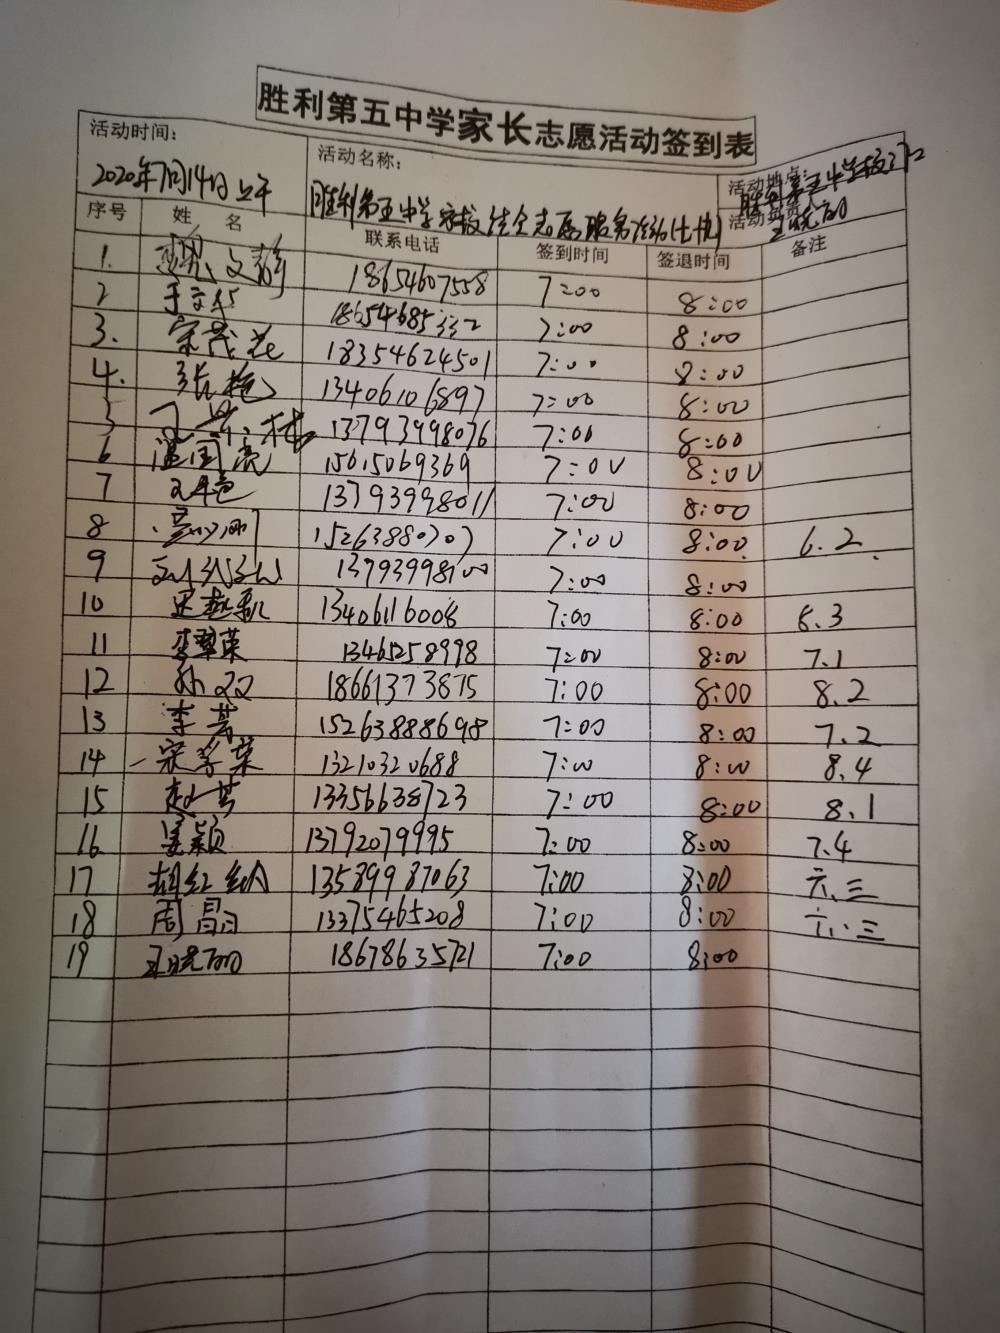 胜利第五中学家长志愿活动签到表
活动时间: 活动名称: 活动地点:
2020年7月14日上午 胜利第五中学 胜利第五中学校门口
活动负责人
序号 姓名 联系电话 签到时间 签退时间 备注
1. 18654607558 7:00 8:00
2 18654685332 7:00 8:00
3. 宋茂花 18354624501 7:00 8:00
4. 张艳 13406106897 7:00 8:00
5 13793998076 7:00 8:00
6 温国亮 15615069369 7:00 8:00
7 13793998011 7:00 8:00
8 15263880707 7:00 8:00 6.2
9 7:00 8:00
10 13406116008 7:00 8:00 8.3
11 李翠荣 13465258998 7:00 8:00 7.1
12 孙双 18661373875 7:00 8:00 8.2
13 李芳 15263888698 7:00 8:00 7.2
14 宋秀荣 13210320688 7:00 8:00 8.4
15 赵芳 13356638723 7:00 8:00 8.1
16 姜颖 13792079995 7:00 8:00 7.4
17 胡红 13589987063 7:00 8:00 六.三
18 周昌 13375465208 7:00 8:00 六.三
19 18678635721 7:00 8:00